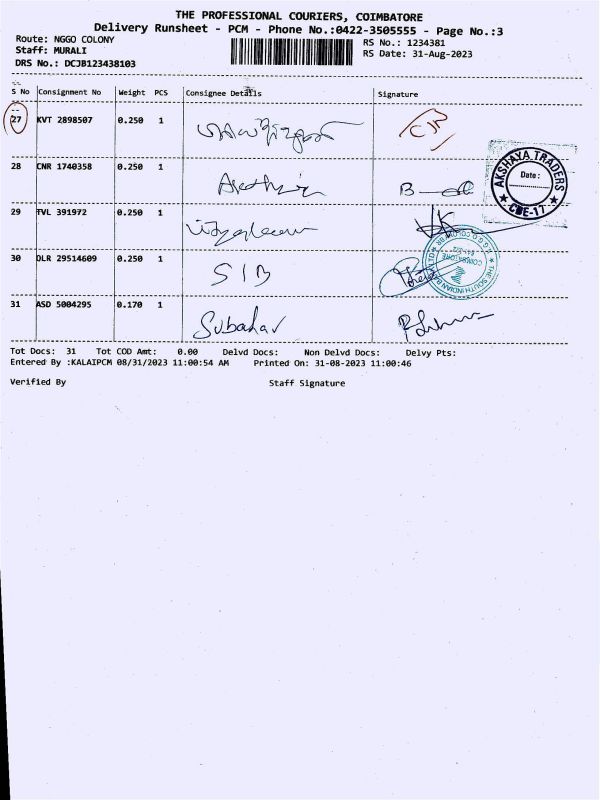 THE PROFESSIONAL COURIERS, COIMBATORE
Delivery Runsheet - PCM - Phone No.:0422-3505555 - Page No.:3
Route: NGGO COLONY
RS No.: 1234381
Staff: MURALI
RS Date: 31-Aug-2023
DRS No.: DCJB123438103
S No Consignment No Weight PCS Consignee Details Signature
27 KVT 2898507 0.250 1
28 CNR 1740358 0.250 1
AKSHAYA TRADERS
Date:
CBE-17
29 TVL 391972 0.250 1
30 DLR 29514609 0.250 1 SIB
THE SOUTH INDIAN BANK LTD
COIMBATORE
31 ASD 5004295 0.170 1
Tot Docs: 31 Tot COD Amt: 0.00 Delvd Docs: Non Delvd Docs: Delvy Pts:
Entered By :KALAIPCM 08/31/2023 11:00:54 AM Printed On: 31-08-2023 11:00:46
Verified By Staff Signature